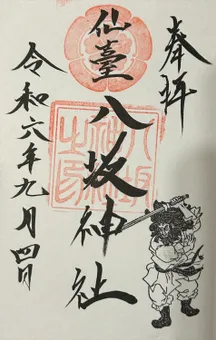 奉拝
仙臺
八坂神社
八坂神社之印
令和六年九月四日